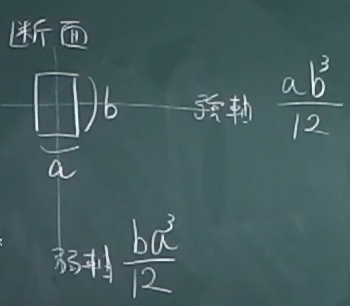 断面
b
強軸 ab³/12
a
弱軸 ba³/12